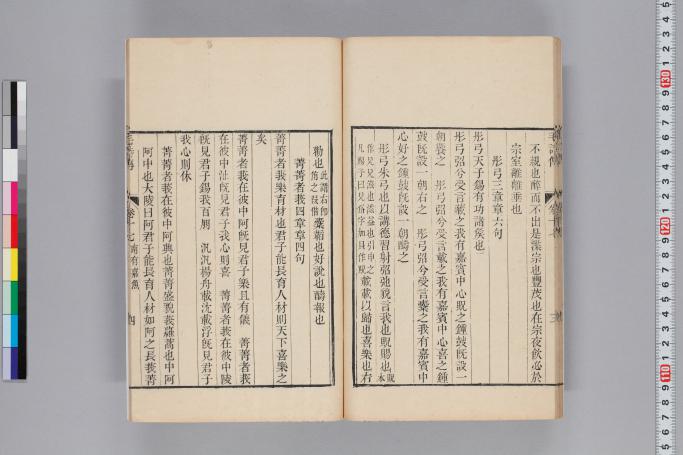 不親也醉而不出是渫宗也豐茂也在宗夜飲必於
宗室離離垂也
彤弓三章章六句
彤弓天子錫有功諸矦也
彤弓弨兮受言藏之我有嘉賓中心貺之鍾鼓旣設一
朝饗之 彤弓弨兮受言載之我有嘉賓中心喜之鍾
鼓旣設一朝右之 彤弓弨兮受言櫜之我有嘉賓中
心好之鍾鼓旣設一朝醻之
彤弓朱弓也以講德習射弨弛皃言我也貺賜也
載載以歸也喜樂也右
勸也 櫜韜也好說也醻報也
菁菁者莪四章章四句
菁菁者莪樂育材也君子能長育人材則天下喜樂之
矣
菁菁者莪在彼中阿旣見君子樂且有儀 菁菁者莪
在彼中沚旣見君子我心則喜 菁菁者莪在彼中陵
旣見君子錫我百朋 汎汎楊舟載沈載浮旣見君子
我心則休
菁菁者莪在彼中阿興也菁菁盛皃莪蘿蒿也中阿
阿中也大陵曰阿君子能長育人材如阿之長莪菁
毛詩傳
卷十七
南有嘉魚
四
130
120
110